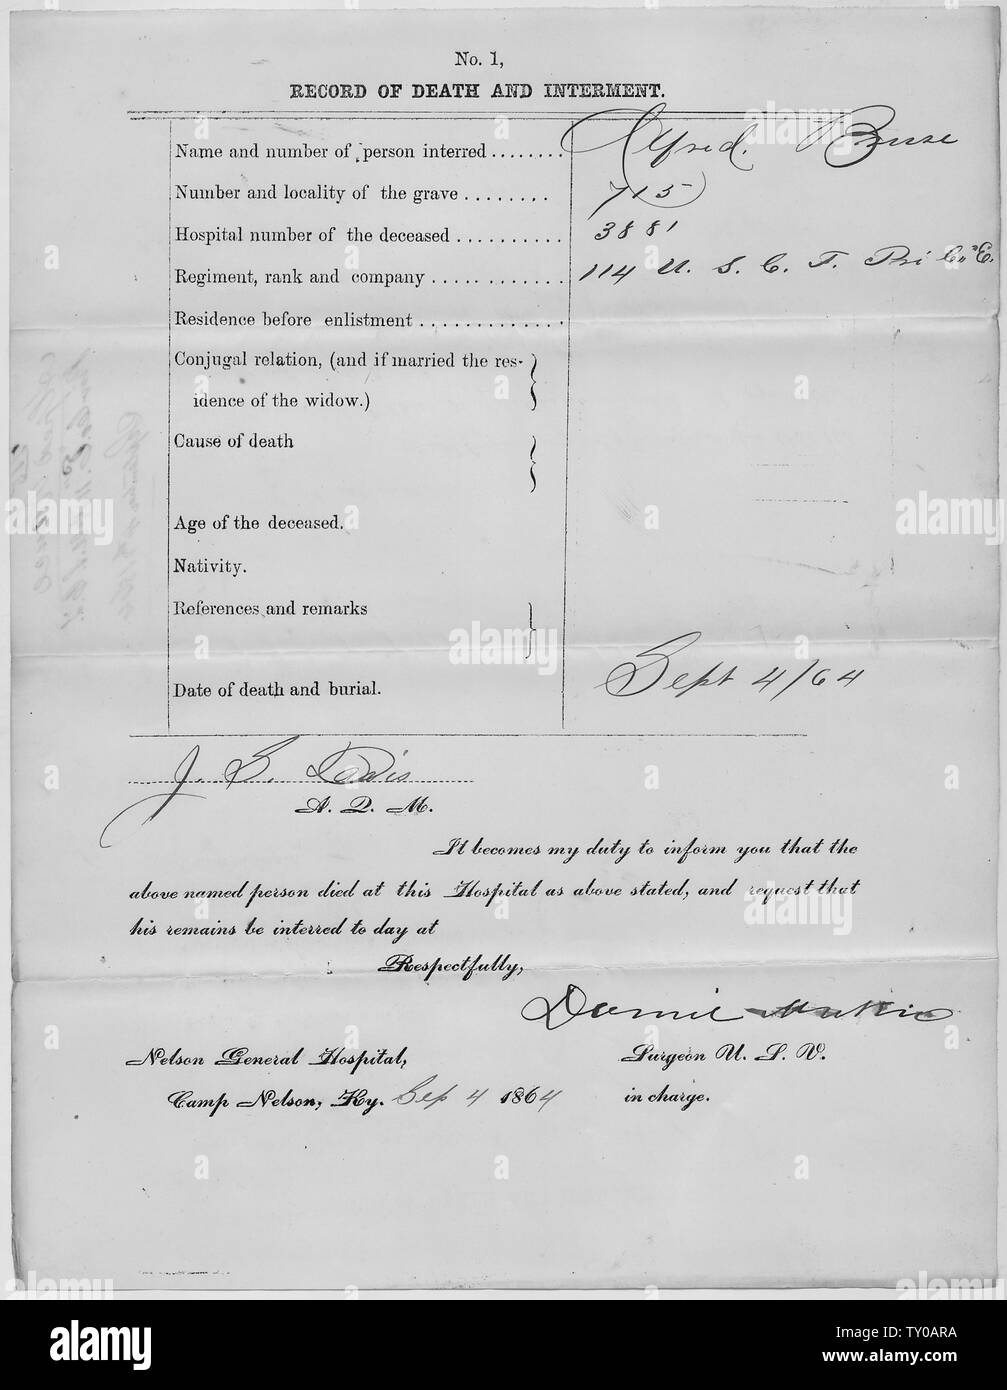 No. 1,
RECORD OF DEATH AND INTERMENT.
Name and number of person interred ........ Alfred.
Number and locality of the grave ........ 715
Hospital number of the deceased .......... 3881
Regiment, rank and company ............ 114 U. S. C. T. Pri Co "E.
Residence before enlistment ............
Conjugal relation, (and if married the res-
idence of the widow.)
Cause of death
Age of the deceased.
Nativity.
References and remarks
Date of death and burial. Sept 4/64
J. S.
A. Q. M.
It becomes my duty to inform you that the
above named person died at this Hospital as above stated, and request that
his remains be interred to day at
Respectfully,
Nelson General Hospital, Surgeon U. S. V.
Camp Nelson, Ky. Sep 4 1864 in charge.
alamy
Image ID: TY0ARA
www.alamy.com